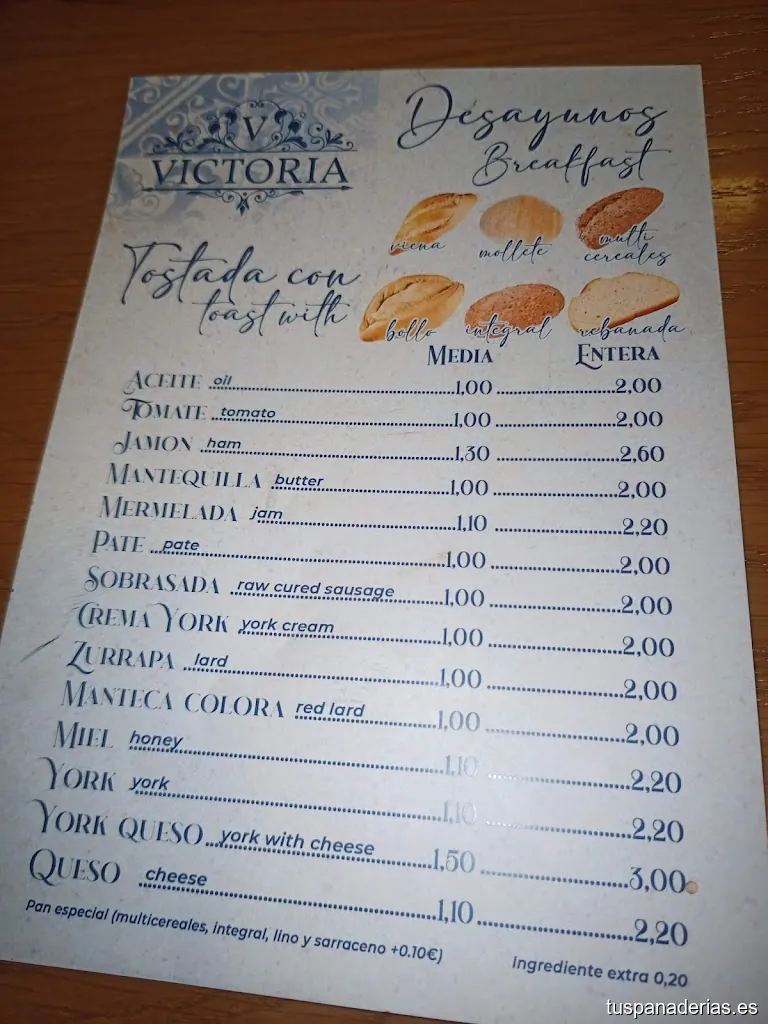 V
VICTORIA
Desayunos
Breakfast
viena
mollete
multi
cereales
Tostada con
toast with
bollo
integral
rebanada
MEDIA ENTERA
ACEITE oil 1,00 2,00
TOMATE tomato 1,00 2,00
JAMON ham 1,30 2,60
MANTEQUILLA butter 1,00 2,00
MERMELADA jam 1,10 2,20
PATE pate 1,00 2,00
SOBRASADA raw cured sausage 1,00 2,00
CREMA YORK york cream 1,00 2,00
ZURRAPA lard 1,00 2,00
MANTECA COLORA red lard 1,00 2,00
MIEL honey 1,10 2,20
YORK york 1,10 2,20
YORK QUESO york with cheese 1,50 3,00
QUESO cheese 1,10 2,20
Pan especial (multicereales, integral, lino y sarraceno +0.10€)
Ingrediente extra 0,20
tuspanaderias.es